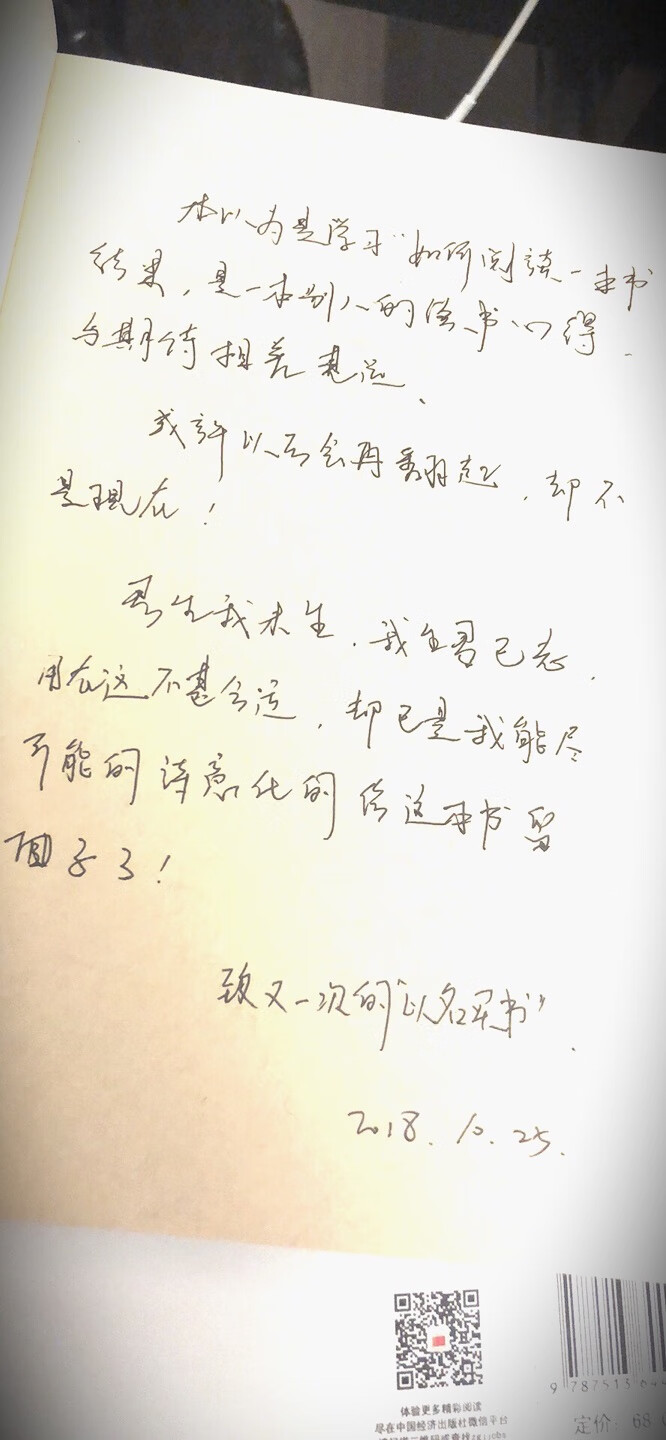 本以为是学习“如何阅读一本书
结果，是一本别人的读书心得．
与期待相差甚远．
或许以后会再翻起，却不
是现在！
君生我未生，我生君已老，
用在这不甚合适，却已是我能尽
可能的诗意化的给这本书留
面子了！
致又一次的“以名买书”．
2018.10.25.
体验更多精彩阅读
尽在中国经济出版社微信平台
9 787513
定价: 68